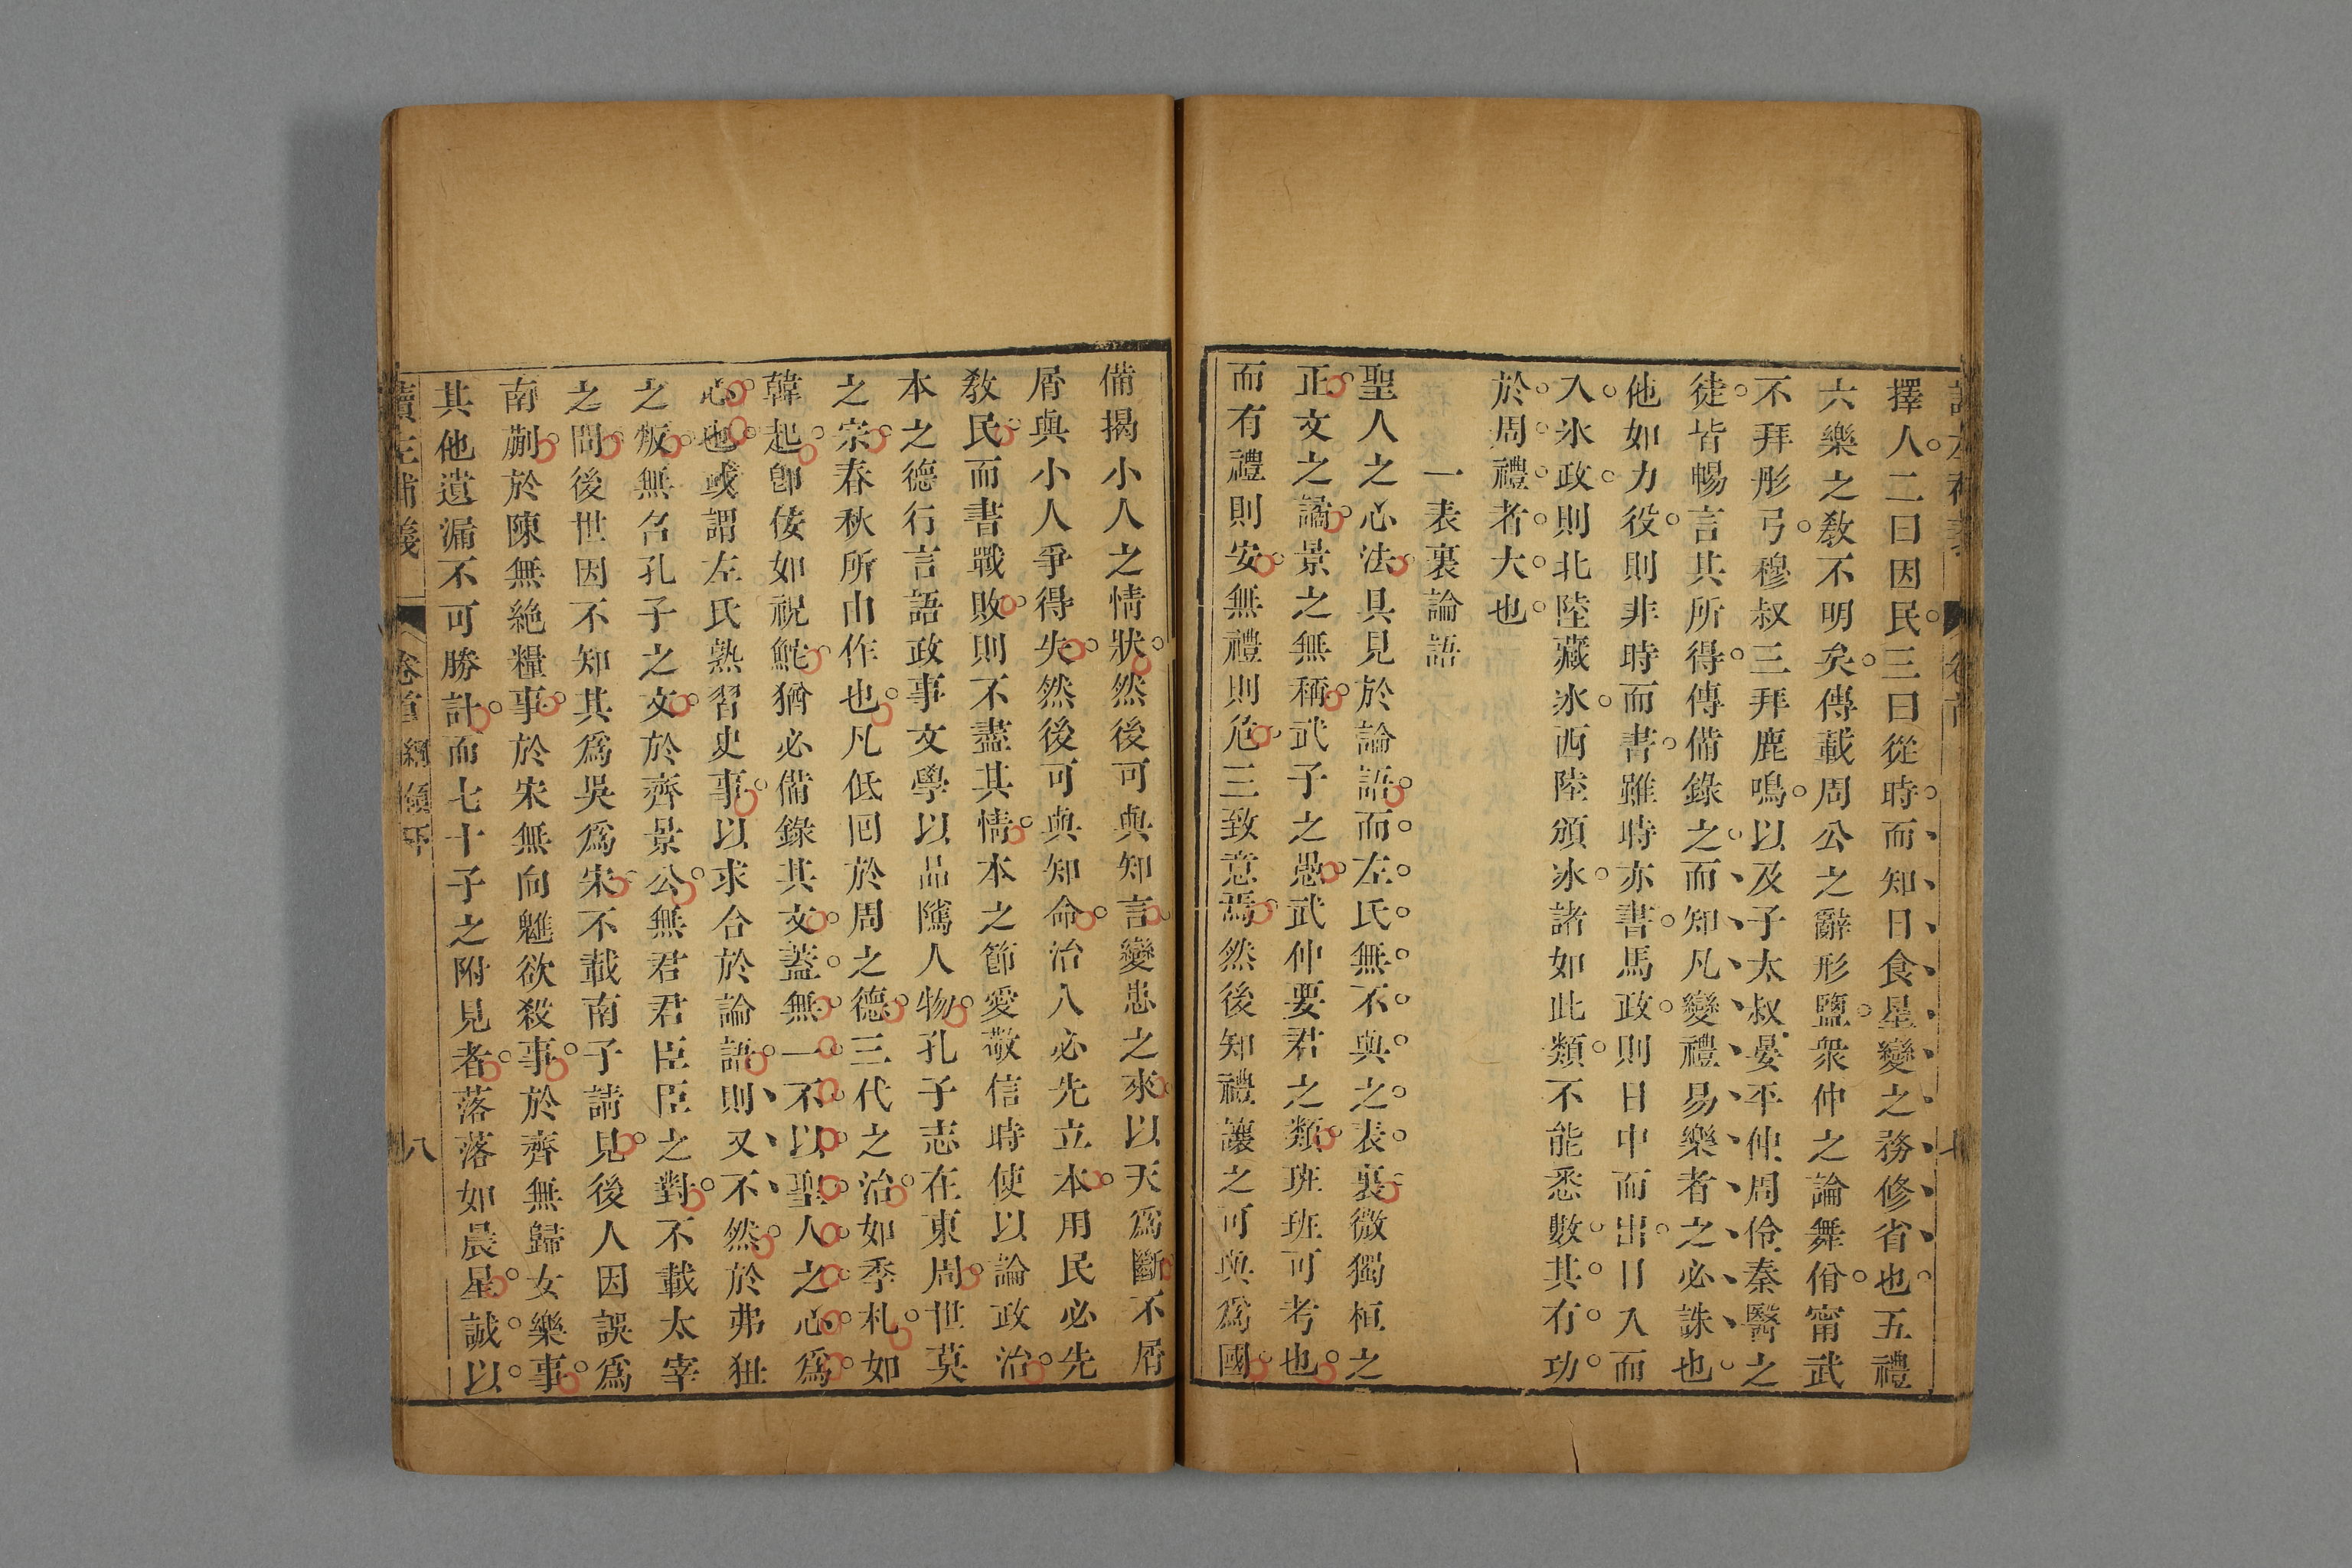 擇人二曰因民三曰從時而知日食星變之務修省也五禮
六樂之敎不明矣傳載周公之辭形鹽衆仲之論舞佾甯武
不拜彤弓穆叔三拜鹿鳴以及子太叔晏平仲周伶秦醫之
徒皆暢言其所得傳備錄之而知凡變禮易樂者之必誅也
他如力役則非時而書雖時亦書馬政則日中而出日入而
入氷政則北陸藏氷西陸頒氷諸如此類不能悉數其有功
於周禮者大也
一表裏論語
聖人之心法具見於論語而左氏無不與之表裏微獨桓之
正文之譎景之無稱武子之愚武仲要君之類班班可考也
而有禮則安無禮則危三致意焉然後知禮讓之可與爲國
備揭小人之情狀然後可與知言變患之來以天爲斷不屑
屑與小人爭得失然後可與知命治人必先立本用民必先
敎民而書戰敗則不盡其情本之節愛敬信時使以論政治
本之德行言語政事文學以品隲人物孔子志在東周世莫
之宗春秋所由作也凡低囘於周之德三代之治如季札如
韓起卽佞如祝鮀猶必備錄其文蓋無一不以聖人之心爲
心也或謂左氏熟習史事以求合於論語則又不然於弗狃
之叛無名孔子之文於齊景公無君君臣臣之對不載太宰
之問後世因不知其爲吳爲宋不載南子請見後人因誤爲
南蒯於陳無絶糧事於宋無向魋欲殺事於齊無歸女樂事
其他遺漏不可勝計而七十子之附見者落落如晨星誠以
讀左補義
卷首 綱領下
八